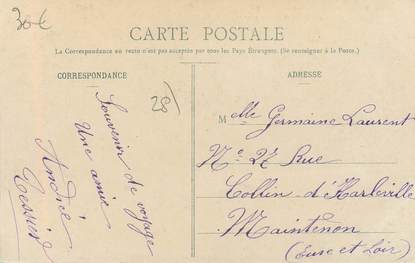 30€
CARTE POSTALE
La Correspondance au recto n'est pas acceptée par tous les Pays Étrangers. (Se renseigner à la Poste.)
CORRESPONDANCE
28
Souvenir de voyage
Une amie
Andrée
Tessier
ADRESSE
Melle Germaine Laurent
27 Rue
Collin d'Harleville
Maintenon
(Eure et Loir)